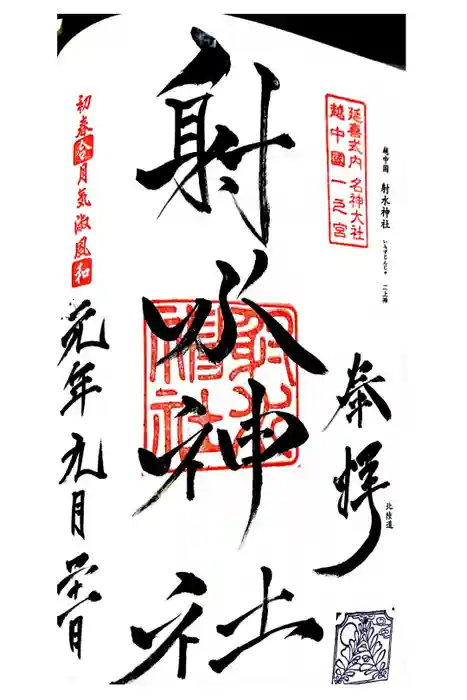 越中国 射水神社 いみずじんじゃ 二上神
北陸道
延喜式内 名神大社
越中國一之宮
奉拝
射水神社
射水神社
初春令月気淑風和
元年九月廿一日